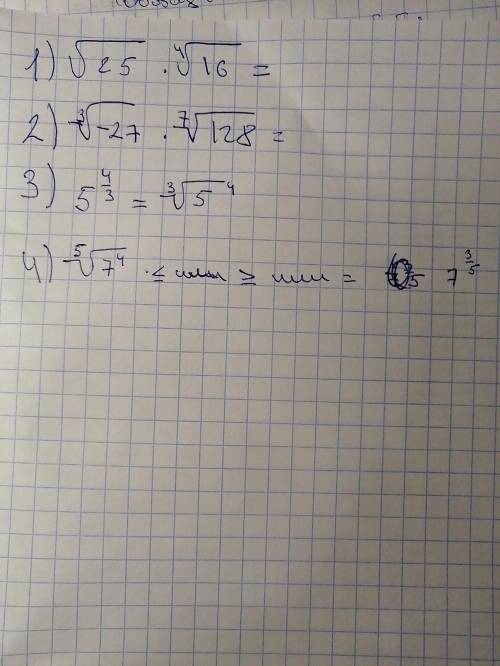 1) √25 · ⁴√16 =
2) ³√-27 · ⁷√128 =
3) 5^(4/3) = ³√5⁴
4) ⁵√7⁴ ≤ или ≥ или = 7^(3/5)